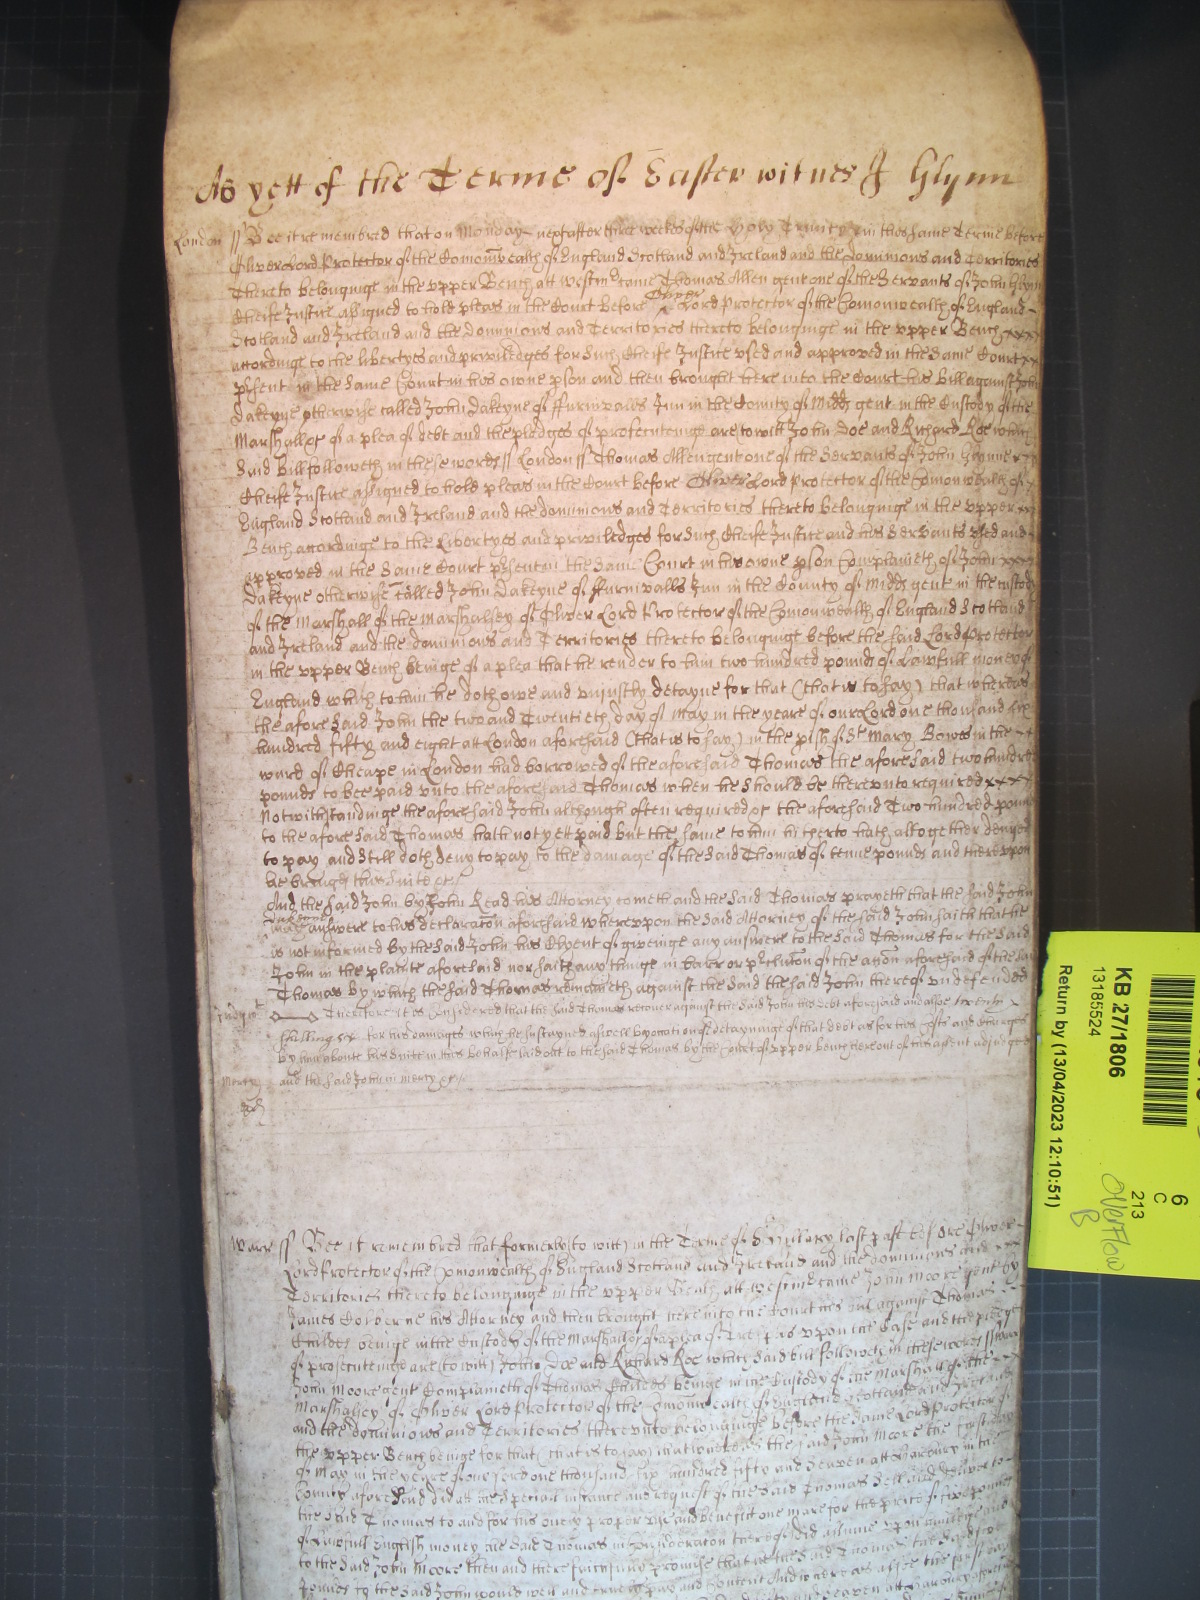 As yett of the Terme of Easter witnes J Glynn
London ss Bee it remembred that on Monday next after three weekes of the Holy Trinity in this same Terme before
Oliver Lord Protector of the Comonwealth of England Scotland and Ireland and the dominions and Territories
thereto belonginge in the upper Bench att Westm came Thomas Allen gent one of the Servants of John Glynn
Cheife Justice assigned to hold pleas in the Court before Oliver Lord Protector of the Comonwealth of England
Scotland and Ireland and the dominions and Territories thereto belonginge in the upper Bench xxx
accordinge to the libertyes and priviledges for such Cheife Justice used and approved in the same Court xx
psent in the same Court in his owne pson and then brought here into the Court his Bill against John
Dakeyne otherwise called John Dakeyne of ffurnivalls Inn in the County of Midds gent in the Custody of the
Marshall &c of a plea of debt and the pledges of prosecuteinge are (to witt) John Doe and Richard Roe which
said Bill followeth in these words ss London ss Thomas Allen gent one of the Servants of John Glynne
Cheife Justice assigned to hold pleas in the Court before Oliver Lord Protector of the Comonwealth of
England Scotland and Ireland and the dominions and Territories thereto belonginge in the upper xx
Bench accordinge to the Libertyes and priviledges for such Cheife Justice and his Servants used and
approved in the same Court psent in the same Court in his owne pson Complaineth of John xxxx
Dakeyne otherwise called John Dakeyne of ffurnivalls Inn in the County of Midds gent in the custody
of the Marshall of the Marshalsey of Oliver Lord Protector of the Comonwealth of England Scotland
and Ireland and the dominions and Territories thereto belonginge before the said Lord Protector
in the upper Bench beinge of a plea that he render to him two hundred pounds of Lawfull money of
England which to him he doth owe and unjustly detayne for that (that is to say) that whereas
the aforesaid John the two and Twentieth day of May in the yeare of our Lord one thousand six
hundred fifty and eight att London aforesaid (that is to say) in the pish of St Mary Bowe in the
ward of Cheape in London had borrowed of the aforesaid Thomas the aforesaid two hundred
pounds to bee paid unto the aforesaid Thomas when he should be thereunto required xxxx
Notwithstandinge the aforesaid John although often required &c the aforesaid Two hundred pounds
to the aforesaid Thomas hath not yett paid but the same to him hitherto hath altogether denyed
to pay and still doth deny to pay to the damage of the said Thomas of tenne pounds and thereupon
he bringth this suite &c
And the said John by John Read his Attorney cometh and the said Thomas prayeth that the said John
may answere to his declaracon aforesaid whereupon the said Attorney of the said John saith that he
is not informed by the said John his Clyent of giveinge any answere to the said Thomas for the said
John in the plainte aforesaid nor saith any thinge in barr or pclusion of the accon aforesaid of the said
Thomas by which the said Thomas remaineth against the said the said John thereof undefended
Judgmt Therefore it is Considered that the said Thomas recover against the said John his debt aforesaid and alsoe twenty
shillings for his damages which he sustayned aswell by occation of detayninge of that debt as for his costs and charges
by him about his suite in this behalfe laid out to the said Thomas by the Court of upper bench here out of his assent adjudged
Mercy and the said John in mercy &c
Warr ss Bee it remembred that formerly (to witt) in the Terme of St Hillary last past before Oliver
Lord Protector of the Comonwealth of England Scotland and Ireland and the dominions and xxx
Territories thereto belonginge in the upper Bench att Westm came John Moore gent by
James his Attorney and then brought here into the Court his bill against Thomas
Childes beinge in the Custody of the Marshall &c of a plea of Trespas upon the Case and the pledges
of prosecuteinge are (to witt) John Doe and Richard Roe which said bill followeth in these words ss Warr
John Moore gent Complaineth of Thomas Childes beinge in the Custody of the Marshall of the
Marshalsey of Oliver Lord Protector of the Comonwealth of England Scotland and Ireland
and the dominions and Territories thereunto belonginge before the same Lord Protector in
the upper Bench beinge for that (that is to say) that whereas the said John Moore the first day
of May in the yeare of our Lord one thousand six hundred fifty and seaven att in the
County aforesaid did att the speciall instance and request of the said Thomas sell and deliver to
the said Thomas to and for his owne proper use and benefitt one mare for the price of five pounds
of lawfull English money the said Thomas in consideracon thereof did assume upon himselfe and
to the said John Moore then and there faithfully promise that he the said Thomas the said five
pounds to the said John would well and truely pay and content And whereas alsoe the first day
KB 27/1806
13185524
Return by (13/04/2023 12:10:51)
6
C
213
Overflow
B